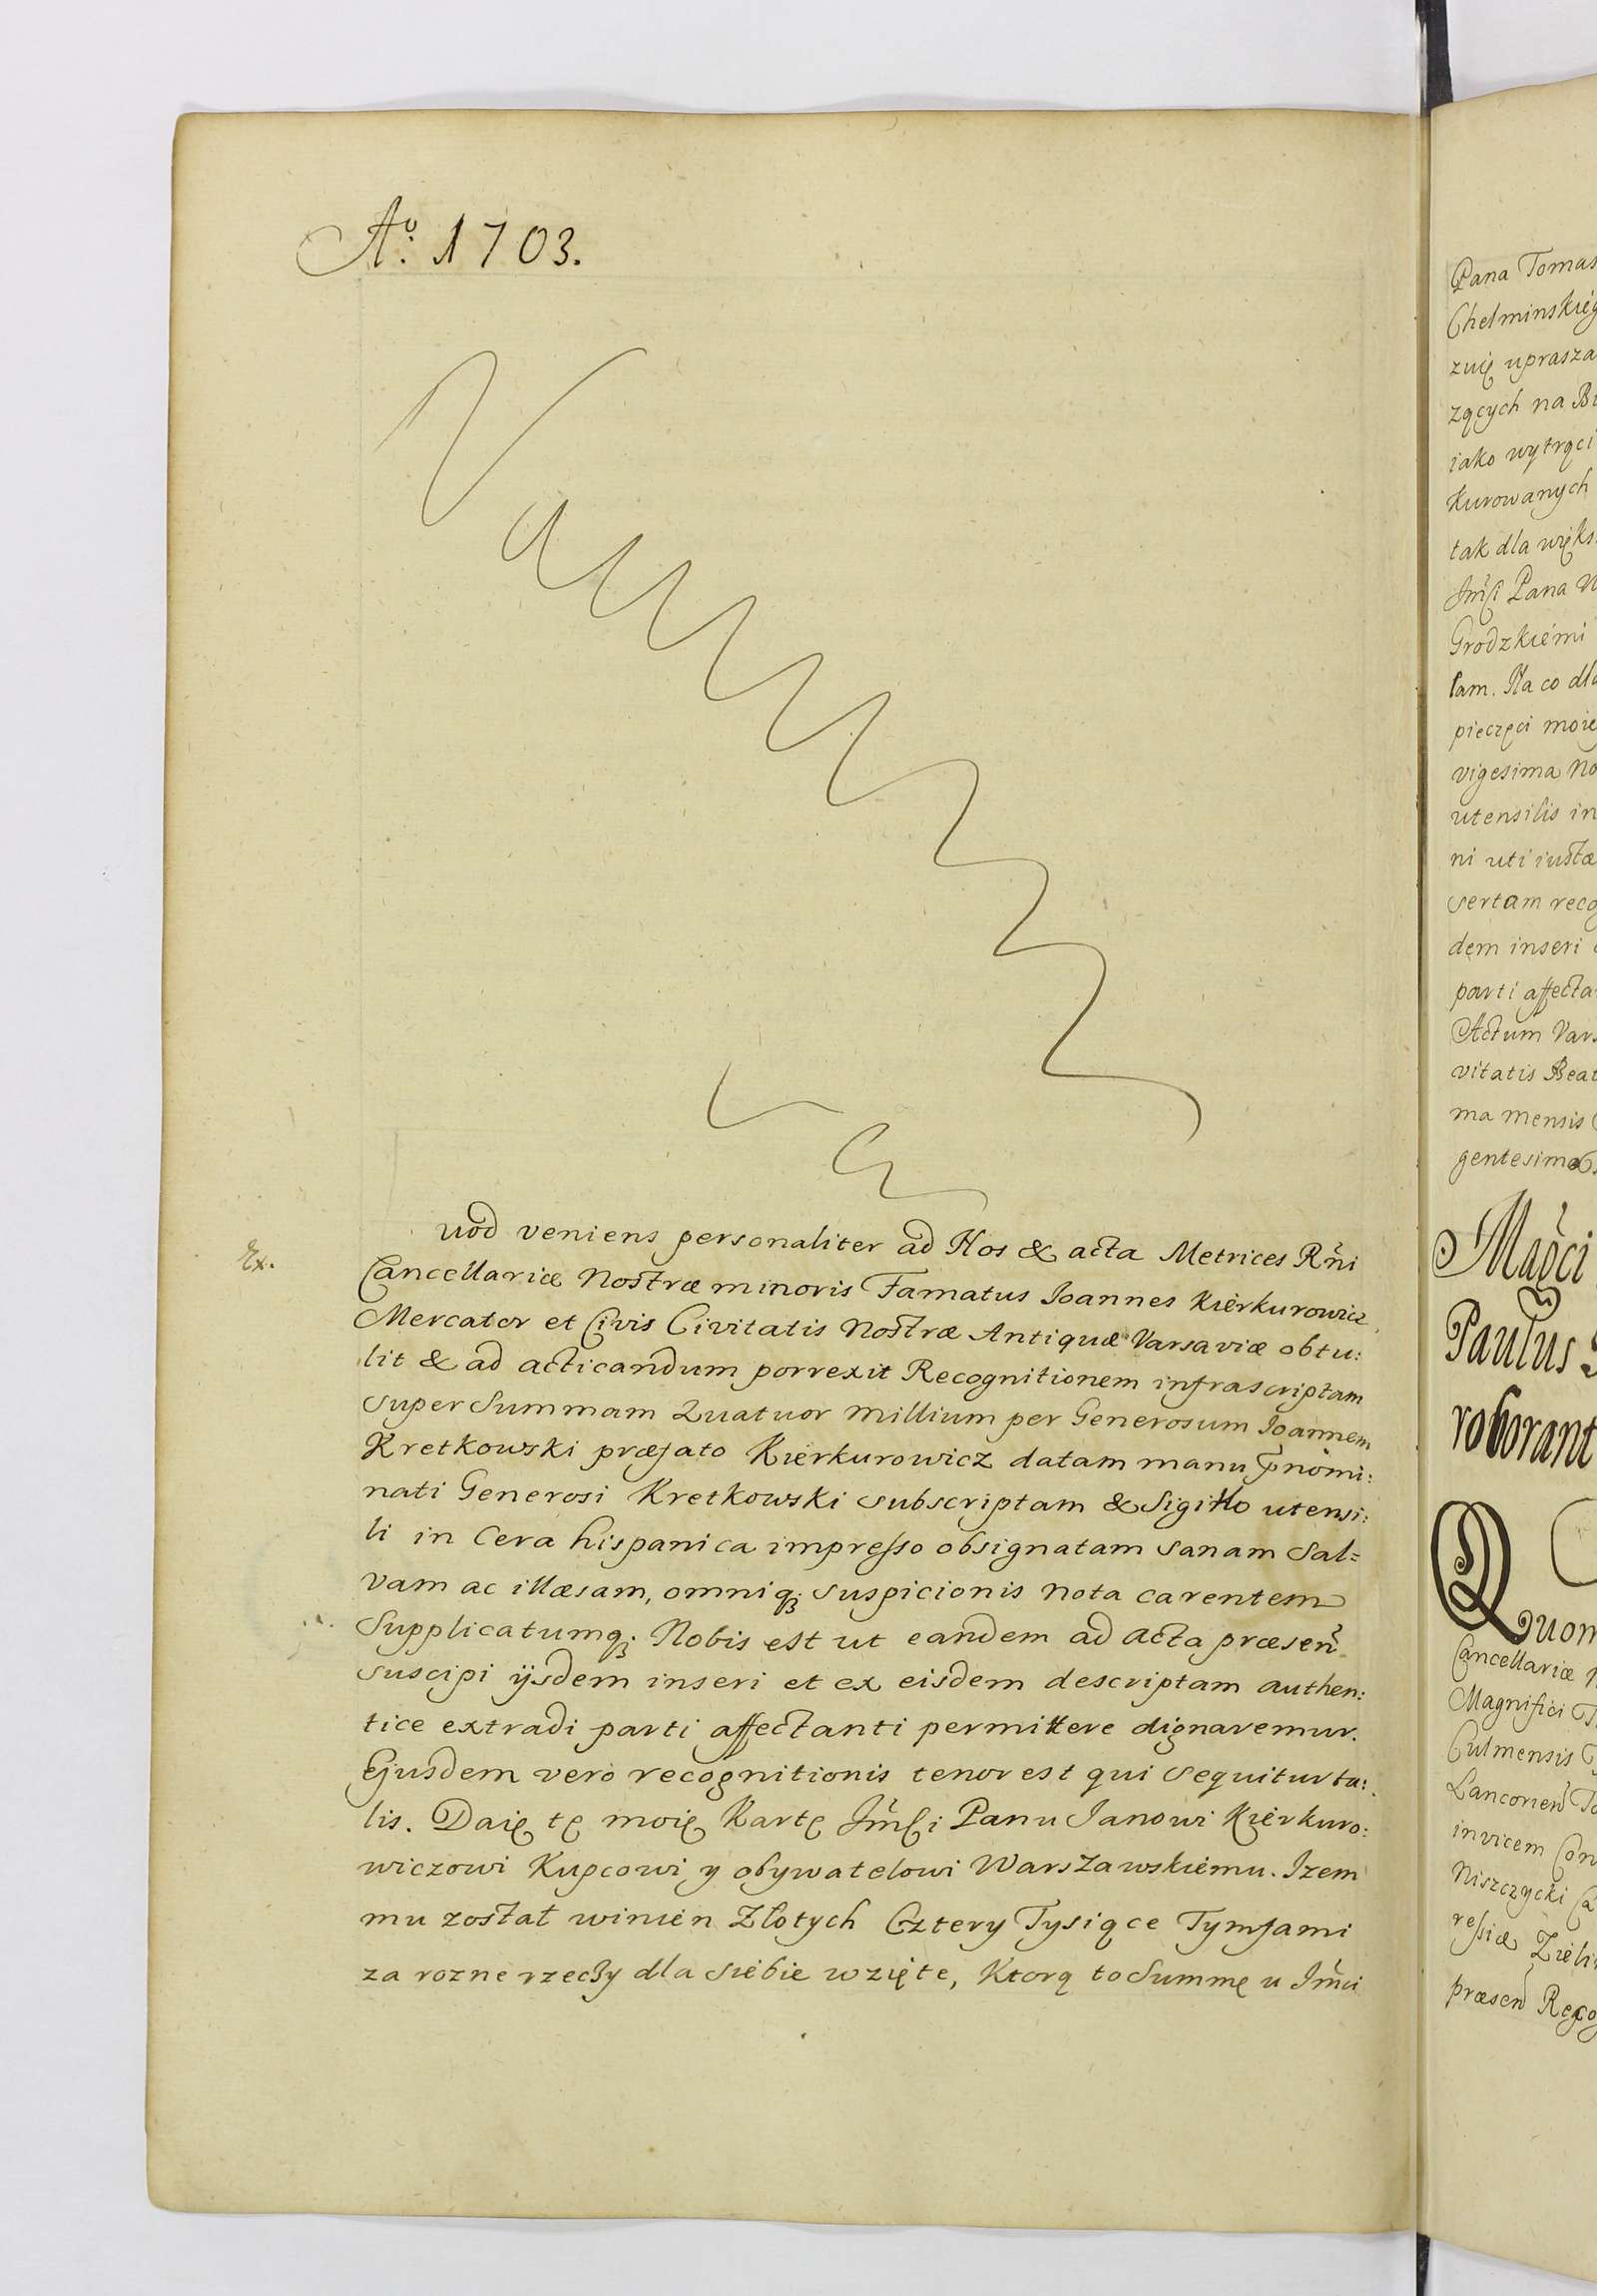 Aº. 1703.
Vacat
uod veniens personaliter ad Nos & acta Metrices Rñi
Ex.
Cancellariæ Nostræ minoris Famatus Ioannes Kierkurowicz
Mercator et Civis Civitatis Nostræ Antiquæ Varsaviæ obtu:
lit & ad acticandum porrexit Recognitionem infrascriptam
super Summam Quatuor Millium per Generosum Ioannem
Kretkowski præfato Kierkurowicz datam manu p̃nomi:
nati Generosi Kretkowski subscriptam & Sigillo utensi:
li in Cera hispanica impresso obsignatam sanam Sal=
vam ac illæsam, omniq; suspicionis nota carentem
Supplicatumq; Nobis est ut eandem ad acta præseñ
suscipi ijsdem inseri et ex eisdem descriptam authen:
tice extradi parti affectanti permittere dignaremur.
Ejusdem vero recognitionis tenor est qui sequitur ta:
lis. Daię tę moię Kartę Jm̃ſi Panu Janowi Kierkuro:
wiczowi Kupcowi y obywatelowi Warszawskiemu. Izem
mu został winien Złotych Cztery Tysiące Tymfami
za rozne rzeczy dla siebie wzięte, Ktorą to Summę u Jm̃ci
Pana Tomas
Chelminskieg
zuię uprasza
zących na
iako wytrąci
kurowanych
tak dla więks
Jm̃ſi Pana
Grodzkiemi
łam. Na co dla
pieczęci moie
vigesima No
utensilis in
ni uti iustæ
sertam recog
dem inseri
parti affecta
Actum Vars
vitatis Beat
ma mensis
gentesimo
Paulus
roborant
Quon
Cancellariæ
Magnifici
Culmensis
invicem Con
Niszczycki
præsen Recog